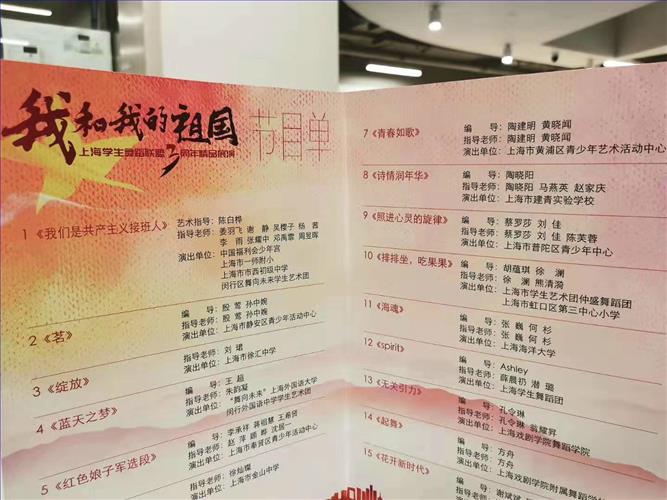 我和我的祖国
上海学生舞蹈联盟3周年精品展演
节目单
1《我们是共产主义接班人》
艺术指导：陈白桦
指导老师：姜羽飞 谢 静 吴樱子 杨 茜
李 雨 张耀中 邓禹霏 周昱晖
演出单位：中国福利会少年宫
上海市一师附小
上海市市西初级中学
闵行区舞向未来学生艺术团
2《茗》
编 导：殷 莺 孙中婉
指导老师：殷 莺 孙中婉
演出单位：上海市静安区青少年活动中心
3《绽放》
指导老师：刘 珺
演出单位：上海市徐汇中学
4《蓝天之梦》
编 导：王 超
指导老师：朱韵凝
演出单位："舞向未来"上海外国语大学
闵行外国语中学学生艺术团
5《红色娘子军选段》
编 导：李承祥 蒋祖慧 王希贤
指导老师：赵 萍 顾 晔 沈居一
演出单位：上海市奉贤区青少年活动中心
指导老师：徐灿燦
演出单位：上海市金山中学
7《青春如歌》
编 导：陶建明 黄晓闻
指导老师：陶建明 黄晓闻
演出单位：上海市黄浦区青少年艺术活动中心
8《诗情润年华》
编 导：陶晓阳
指导老师：陶晓阳 马燕英 赵家庆
演出单位：上海市建青实验学校
9《照进心灵的旋律》
编 导：蔡罗莎 刘 佳
指导老师：蔡罗莎 刘 佳 陈芙蓉
演出单位：上海市普陀区青少年中心
10《排排坐，吃果果》
编 导：胡蕴琪 徐 澜
指导老师：徐 澜 熊清漪
演出单位：上海市学生艺术团仲盛舞蹈团
上海市虹口区第三中心小学
11《海魂》
编 导：张 巍 何 杉
指导老师：张 巍 何 杉
演出单位：上海海洋大学
12《spirit》
编 导：Ashley
指导老师：薛晨礽 潜 璐
演出单位：上海学生舞蹈团
13《无关引力》
编 导：孔令琳
指导老师：孔令琳 翁耀昇
演出单位：上海戏剧学院舞蹈学院
14《起舞》
编 导：方舟
指导老师：方舟
演出单位：上海戏剧学院附属舞蹈学
15《花开新时代》
编 导：谢斌斌